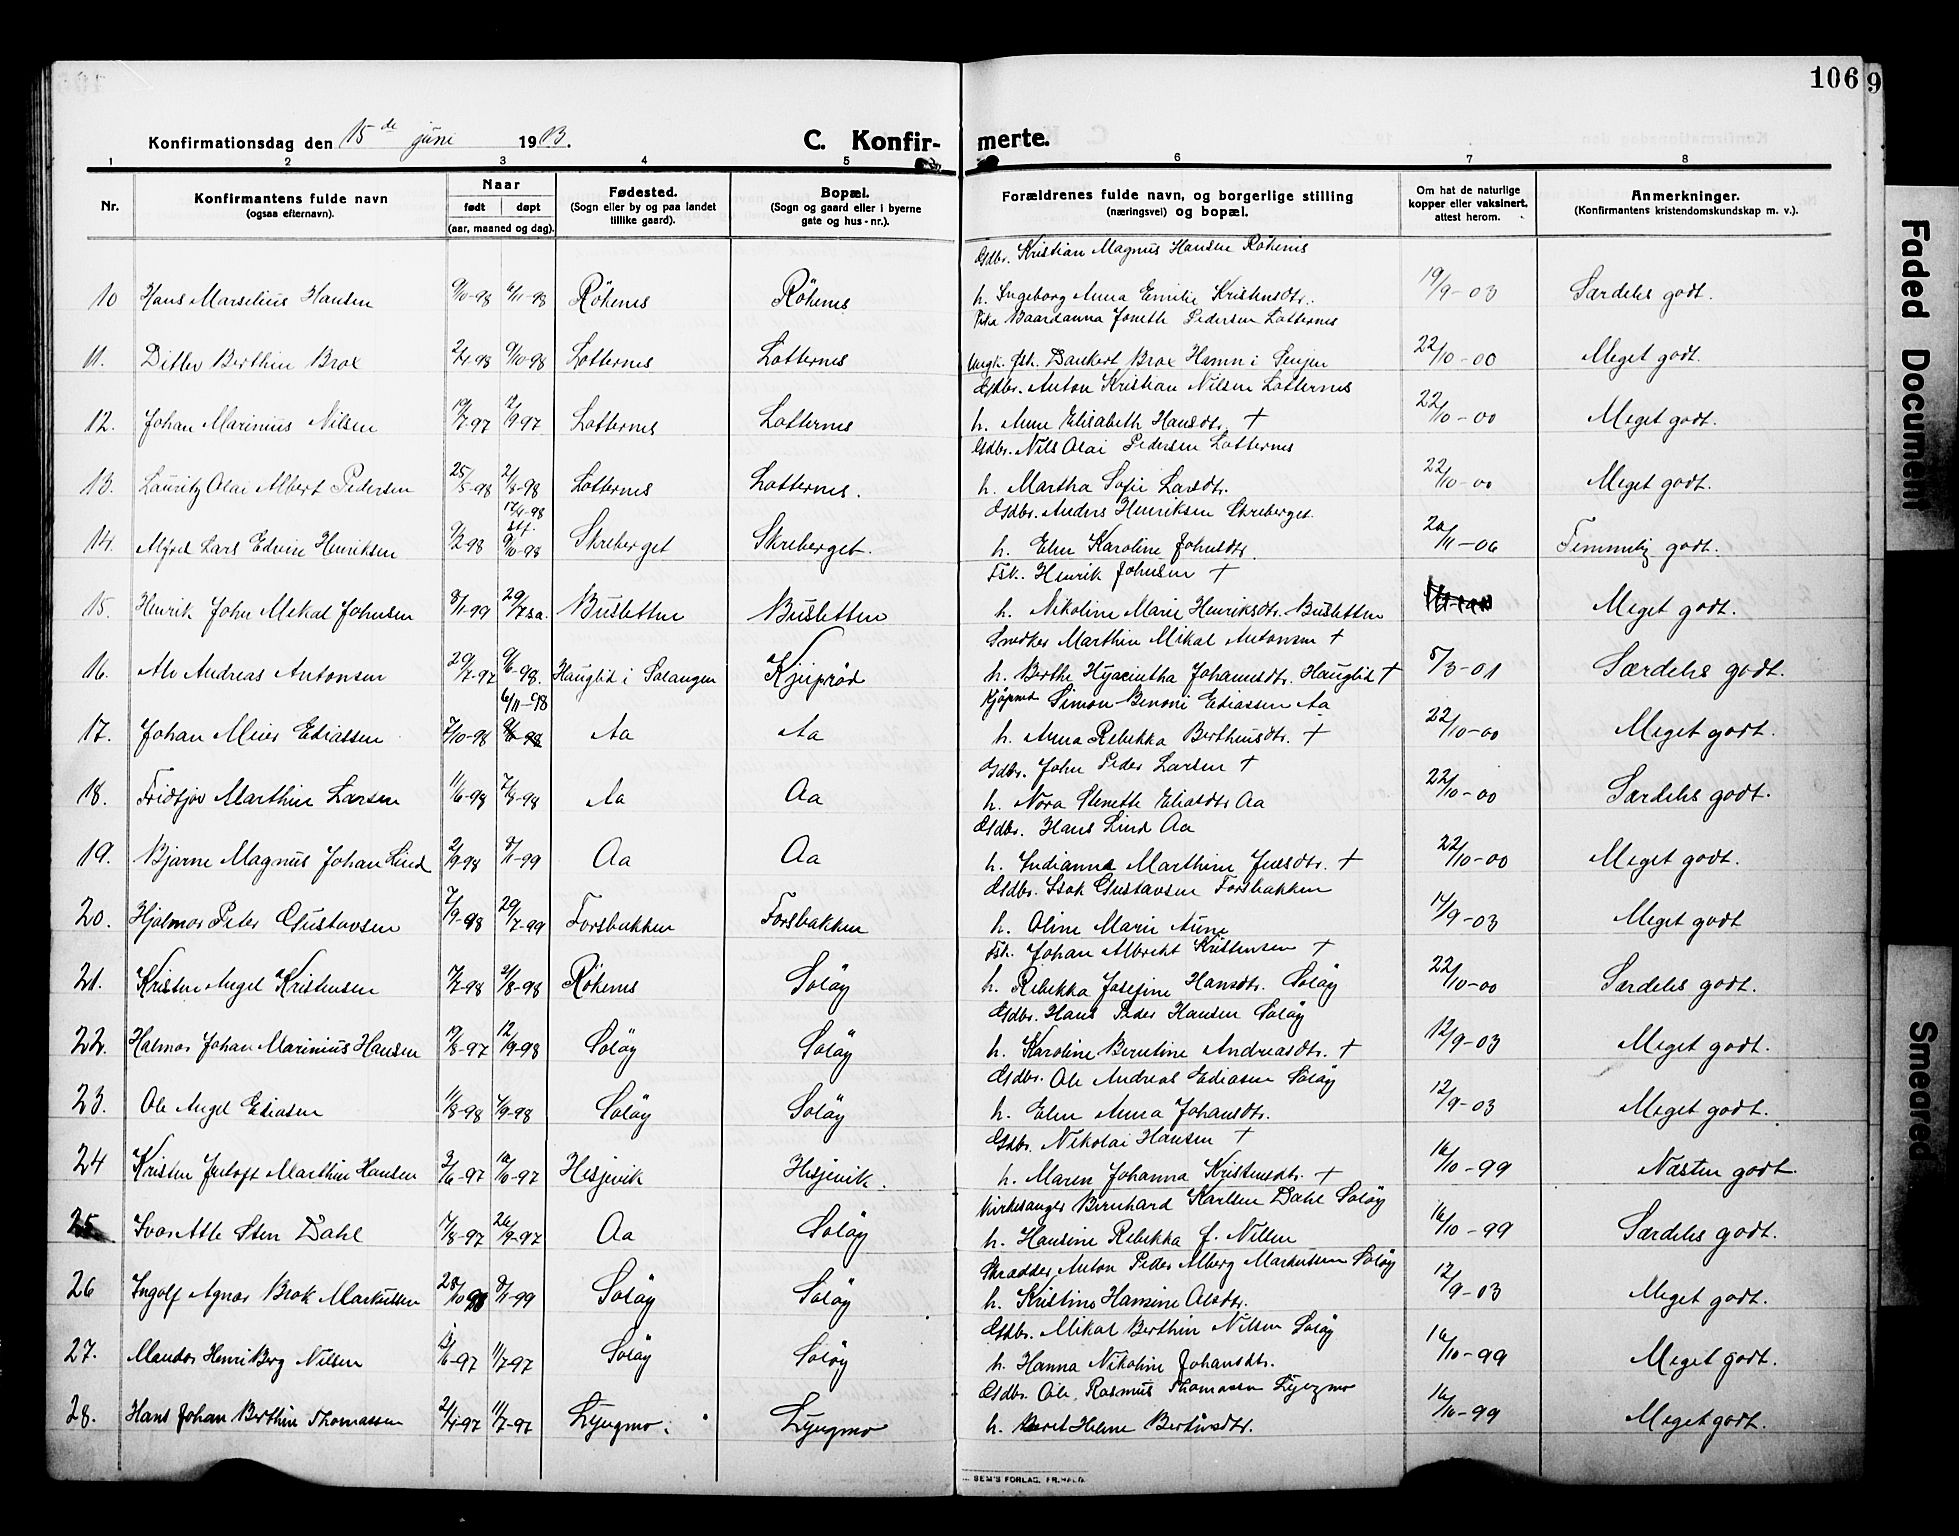 106
9
Faded Document
Smeared
Konfirmationsdag den 15de juni 1913.
C. Konfir-
merte.
1 2 3 4 5 6 7 8
Nr.
Konfirmantens fulde navn
(ogsaa efternavn).
Naar
født døpt
(aar, maaned og dag).
Fødested.
(Sogn eller by og paa landet
tillike gaard).
Bopæl.
(Sogn og gaard eller i byerne
gate og hus-nr.).
Forældrenes fulde navn, og borgerlige stilling
(næringsvei) og bopæl.
Om hat de naturlige
kopper eller vaksinert,
attest herom.
Anmerkninger.
(Konfirmantens kristendomskundskap m. v.).
Gdbr. Kristian Magnus Hansen Rökenes
10 Hans Marselius Hansen 9/10-98 6/11-98 Rökenes Rökenes h. Ingeborg Anna Emilie Kristensdtr. 19/9-03 Særdeles godt.
Pike Baardanna Jonette Pedersen Lotternes
11. Ditlev Berthin Brox 2/4-98 9/10-98 Lotternes Lotternes Ungk. fsk. Dankert Brox Hamn i Senjen 22/10-00 Meget godt.
Gdbr. Anton Kristian Nilsen Lotternes
12. Johan Marinius Nilsen 19/7-97 12/9-97 Lotternes Lotternes h. Anne Elisabeth Hansdtr. † 22/10-00 Meget godt.
Gdbr. Nils Olai Pedersen Lotternes
13. Lauritz Olai Albert Pedersen 25/5-98 21/8-98 Lotternes Lotternes. h. Martha Sofie Larsdtr. 22/10-00 Meget godt.
17/4-98 Gdbr. Anders Henriksen Skreberget
14. Alfred Lars Edvin Henriksen 9/2-98 st.f. 9/10-98 Skreberget Skreberget. h. Elen Karoline Johnsdtr. 20/11-06 Temmelig godt.
Fsk. Henrik Johnsen †
15. Henrik John Mikal Johnsen 8/1-99 29/7 s.a. Busletten Busletten h. Nikoline Marie Henriksdtr. Busletten Meget godt.
Snedker Marthin Mikal Antonsen †
16. Alv Andreas Antonsen 29/7-97 9/6-98. Hauglid i Salangen h. Berthe Hyacintha Johannesdtr. Hauglid † 8/3-01 Særdeles godt.
6/11-98 Kjöpmd Simon Benoni Ediassen Aa
17. Johan Meier Ediassen 7/10-98 Aa Aa h. Anna Rebekka Bertheusdtr. † 22/10-00 Meget godt.
Gdbr. John Peder Larsen †
18. Fridtjov Marthin Larsen 11/6-98 7/8-98 Aa Aa h. Nora Elenette Eliasdtr. Aa 22/10-00 Særdeles godt.
Gdbr. Hans Lind Aa
19. Bjarne Magnus Johan Lind 2/9-98 8/1-99 Aa Aa h. Indianna Marthine Jensdtr. † 22/10-00 Meget godt.
Gdbr. Isak Gustavsen Forsbakken
20. Hjalmar Peter Gustavsen 7/9-98 29/7-99 Forsbakken Forsbakken h. Oline Marie Aune 17/9-03 Meget godt
Fsk. Johan Albrekt Kristensen †
21. Kristen Angel Kristensen 7/7-98 21/8-98 Rökenes Soløy h. Rebekka Josefine Hansdtr. Soløy 22/10-00 Særdeles godt.
Gdbr. Hans Peder Hansen Soløy
22. Halmar Johan Marinius Hansen 17/8-97 12/9-98 Soløy Soløy h. Karoline Berntine Andreasdtr. † 12/9-03 Meget godt.
Gdbr. Ole Andreas Ediasen Soløy
23. Ole Angel Ediasen 11/8-98 4/9-98 Soløy Soløy h. Elen Anna Johansdtr. 12/9-03 Meget godt.
Gdbr. Nikolai Hansen †
24 Kristen Jentoft Marthin Hansen 3/6-97 10/10-97 Hesjevik Hesjevik. h. Maren Johanna Kristensdtr. † 16/10-99 Næsten godt.
Kirkesanger Bernhard Karlsen Dahl Soløy
25. Svar Atle Sten Dahl 7/8-97 26/9-97 Aa Soløy h. Hansine Rebekka f. Nilsen 16/10-99 Særdeles godt.
Skrædder Anton Peder Alberg Markussen Soløy
26 Ingolf Agnar Brok Markussen 28/10-98 8/1-99 Soløy Soløy h. Kristine Hansine Olsdtr. 12/9-03 Meget godt.
Gdbr. Mikal Berthin Nilsen Soløy
27. Mandor Henri Berg Nilsen 13/6-97 11/7-97 Soløy Soløy h. Hanna Nikoline Johansdtr. 16/10-99 Meget godt.
Gdbr. Ole Rasmus Thomassen Lyngmo
28. Hans Johan Berthin Thomassen 2/4-97 11/7-97 Lyngmo. Lyngmo h. Beret Helene Bertheusdtr. 16/10-99 Meget godt.
SEM'S FORLAG, FR.HALD.